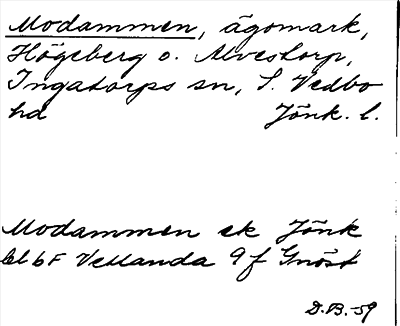 Modammen, ägomark,
Högeberg o. Alvestorp,
Ingatorps sn, S. Vedbo
hd Jönk. l.
Modammen ek Jönk
bl 6F Vetlanda 9 f Gnöst
D.B. -59